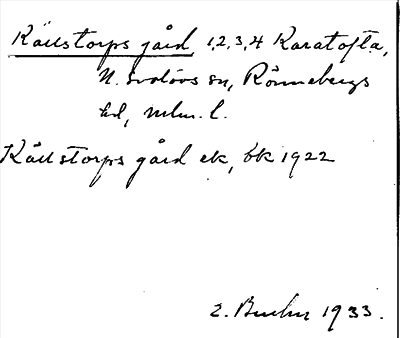 Källstorps gård, 1,2,3,4 Karatofta,
N. Svalövs sn, Rönnebergs
hd, Mlm. l.
Källstorps gård ek, bk 1922
E. 1933.